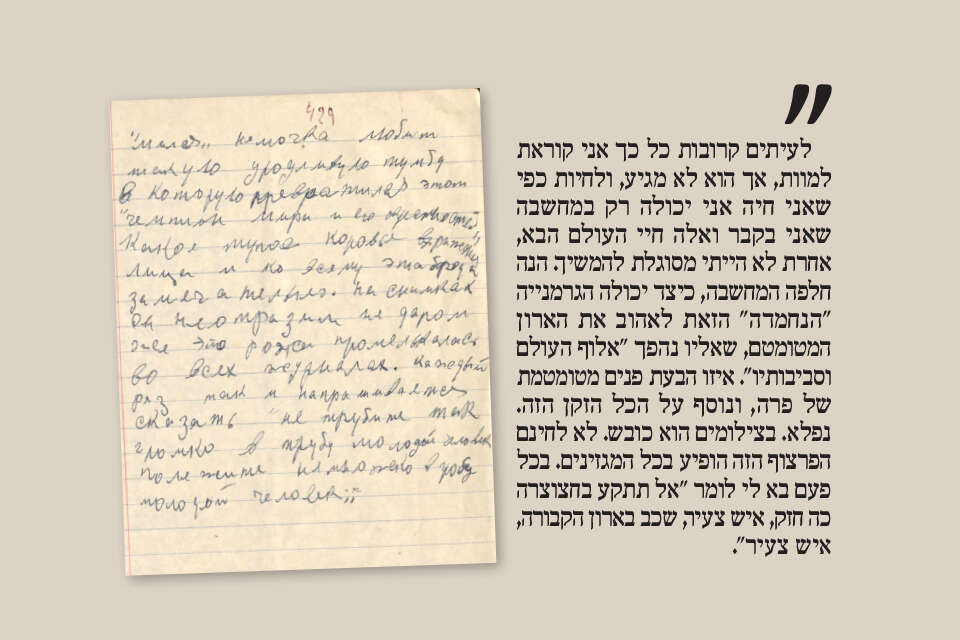 ”
לעיתים קרובות כל כך אני קוראת
למוות, אך הוא לא מגיע, ולחיות כפי
שאני חיה אני יכולה רק במחשבה
שאני בקבר ואלה חיי העולם הבא,
אחרת לא הייתי מסוגלת להמשיך. הנה
חלפה המחשבה, כיצד יכולה הגרמנייה
"הנחמדה" הזאת לאהוב את הארון
המטומטם, שאליו נהפך "אלוף העולם
וסביבותיו". איזו הבעת פנים מטומטמת
של פרה, ונוסף על הכל הזקן הזה.
נפלא. בצילומים הוא כובש. לא לחינם
הפרצוף הזה הופיע בכל המגזינים. בכל
פעם בא לי לומר "אל תתקע בחצוצרה
כה חזק, איש צעיר, שכב בארון הקבורה,
איש צעיר".
429
"милая,, немочка любит
такую уродливую тумбу
в которую этот
"чемпион мира и его
Какое тупое коровье
лица и ко всему эта
на снимках
он неотразим не даром
же эта рожа промелькалась
во всех журналах. Каждый
раз так и напрашивается
сказать "не трубите так
громко в трубу молодой человек
полежите немножко в гробу
молодой человек"